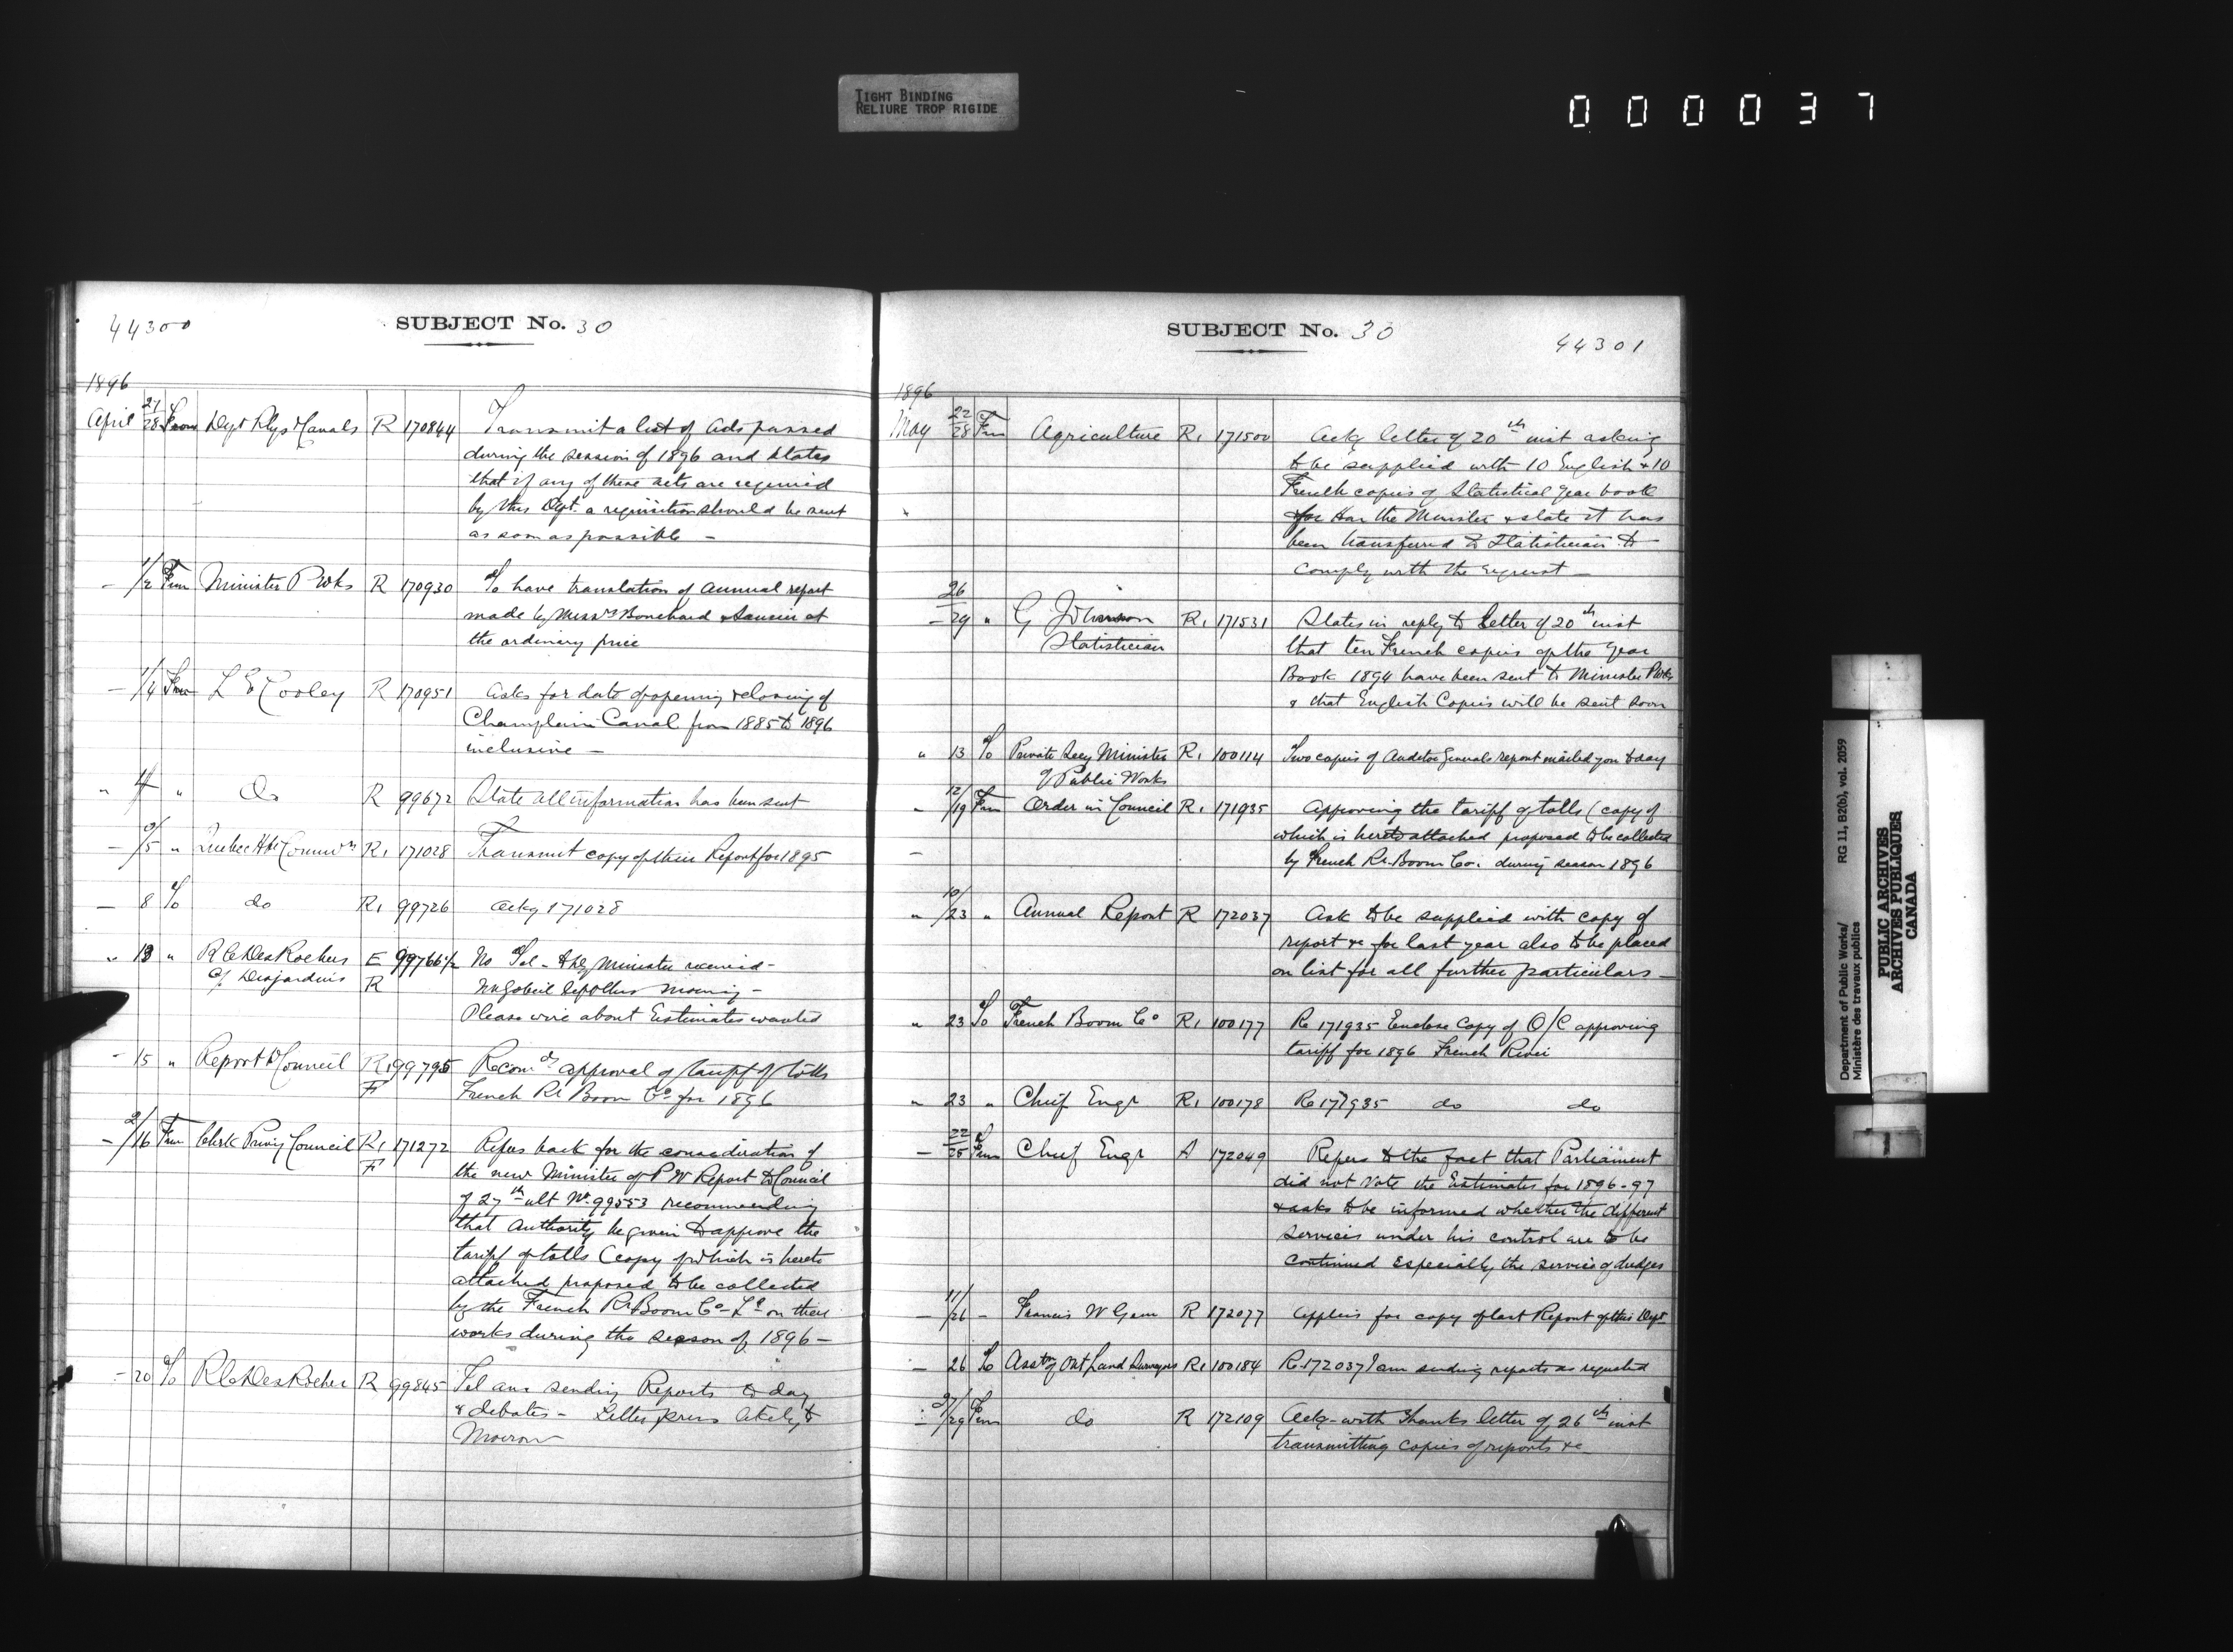 TIGHT BINDING
RELIURE TROP RIGIDE
000037
44300
SUBJECT No. 30
1896
April 27/28 From Dept Rlys & Canals R 170844 Transmit a list of Acts passed
during the session of 1896 and states
that if any of these acts are required
by this Dept. a requisition should be sent
as soon as possible —
— 1/2 Frm Minister P Wks R 170930 To have translation of Annual report
made by Messrs Bouchard & Saucier at
the ordinary price
— 1/4 Frm L E Cooley R 170951 Asks for date of opening & closing of
Champlain Canal from 1885 to 1896
inclusive —
" 4 " Do R 99672 State all information has been sent
— /5 " Quebec Hbr Commrs R1 171028 Transmit copy of their Report for 1895
— 8 To do R1 99726 Ackg 171028
" 13 " R C DesRochers E 99766 1/2 No Tel - & Minister received -
Desjardins R Mr Gobeil left this morning -
Please wire about Estimates wanted
- 15 " Report to Council R1 99795 Recomds approval of tariff of tolls
F French Rr Boom Co for 1896
— 2/16 Frm Clerk Privy Council R1 171272 Refers back for the consideration of
F the new Minister of P W Report to Council
of 27th ult No 99553 recommending
that Authority be given to approve the
tariff of tolls (copy of which is hereto
attached proposed to be collected
by the French Rr Boom Co Ld on their
works during the season of 1896 —
- 20 To R C DesRochers R 99845 Tel am sending Reports to day
& debates - Letter press likely to
Morrow
SUBJECT No. 30
44301
1896
May 22/28 Frm Agriculture R1 171500 Ackg letter of 20th inst asking
to be supplied with 10 English & 10
French copies of Statistical Year book
for Hon the Minister & state it has
been transferred to Statistician to
comply with the request —
— 26/29 " G Johnson R1 171531 States in reply to letter of 20th inst
Statistician that ten French copies of the Year
Book 1894 have been sent to Minister P Wks
& that English Copies will be sent soon
" 13 To Private Secy Minister R1 100114 Two copies of Auditor Generals report mailed you today
of Public Works
" 12/19 Frm Order in Council R1 171935 Approving the tariff of tolls (copy of
which is hereto attached proposed to be collected
by French Rr. Boom Co. during season 1896
" 10/23 " Annual Report R 172037 Ask to be supplied with copy of
report &c for last year also to be placed
on list for all further particulars —
" 23 To French Boom Co R1 100177 Re 171935 Enclose Copy of O/C approving
tariff for 1896 French River
" 23 " Chief Engr R1 100178 Re 171935 do do
— 22/25 Frm Chief Engr A 172049 Refers to the fact that Parliament
did not Vote the Estimates for 1896-97
& asks to be informed whether the different
Services under his control are to be
continued especially the service of dredges
— 11/26 - Francis W R 172077 Applies for copy of last Report of this Dept
— 26 To Asstn of Ont Land Surveyors R1 100184 Re 172037 I am sending reports as requested
27/29 Frm do R 172109 Ackg with thanks letter of 26th inst
transmitting copies of reports &c
Department of Public Works/
Ministère des travaux publics
RG 11, B2(b), vol. 2059
PUBLIC ARCHIVES
ARCHIVES PUBLIQUES
CANADA